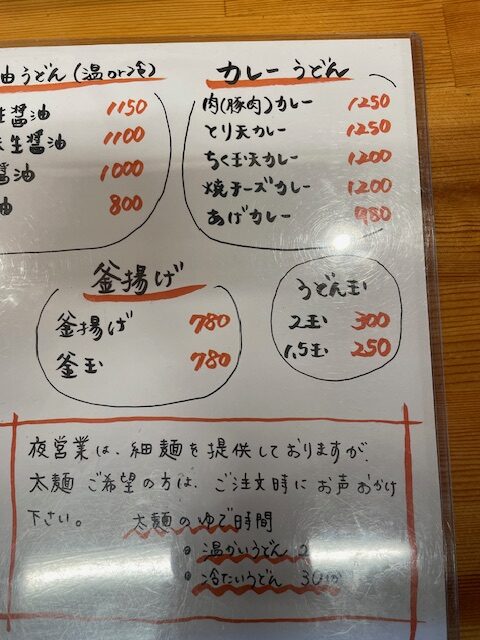 うどん(温or冷)
生醤油 1150
生醤油 1100
醤油 1000
油 800
カレーうどん
肉(豚肉)カレー 1250
とり天カレー 1250
ちく玉天カレー 1200
焼チーズカレー 1200
あげカレー 980
釜揚げ
釜揚げ 780
釜玉 780
うどん玉
2玉 300
1.5玉 250
夜営業は、細麺を提供しておりますが、
太麺ご希望の方は、ご注文時にお声おかけ
下さい。 太麺のゆで時間
●温かいうどん
●冷たいうどん 30分